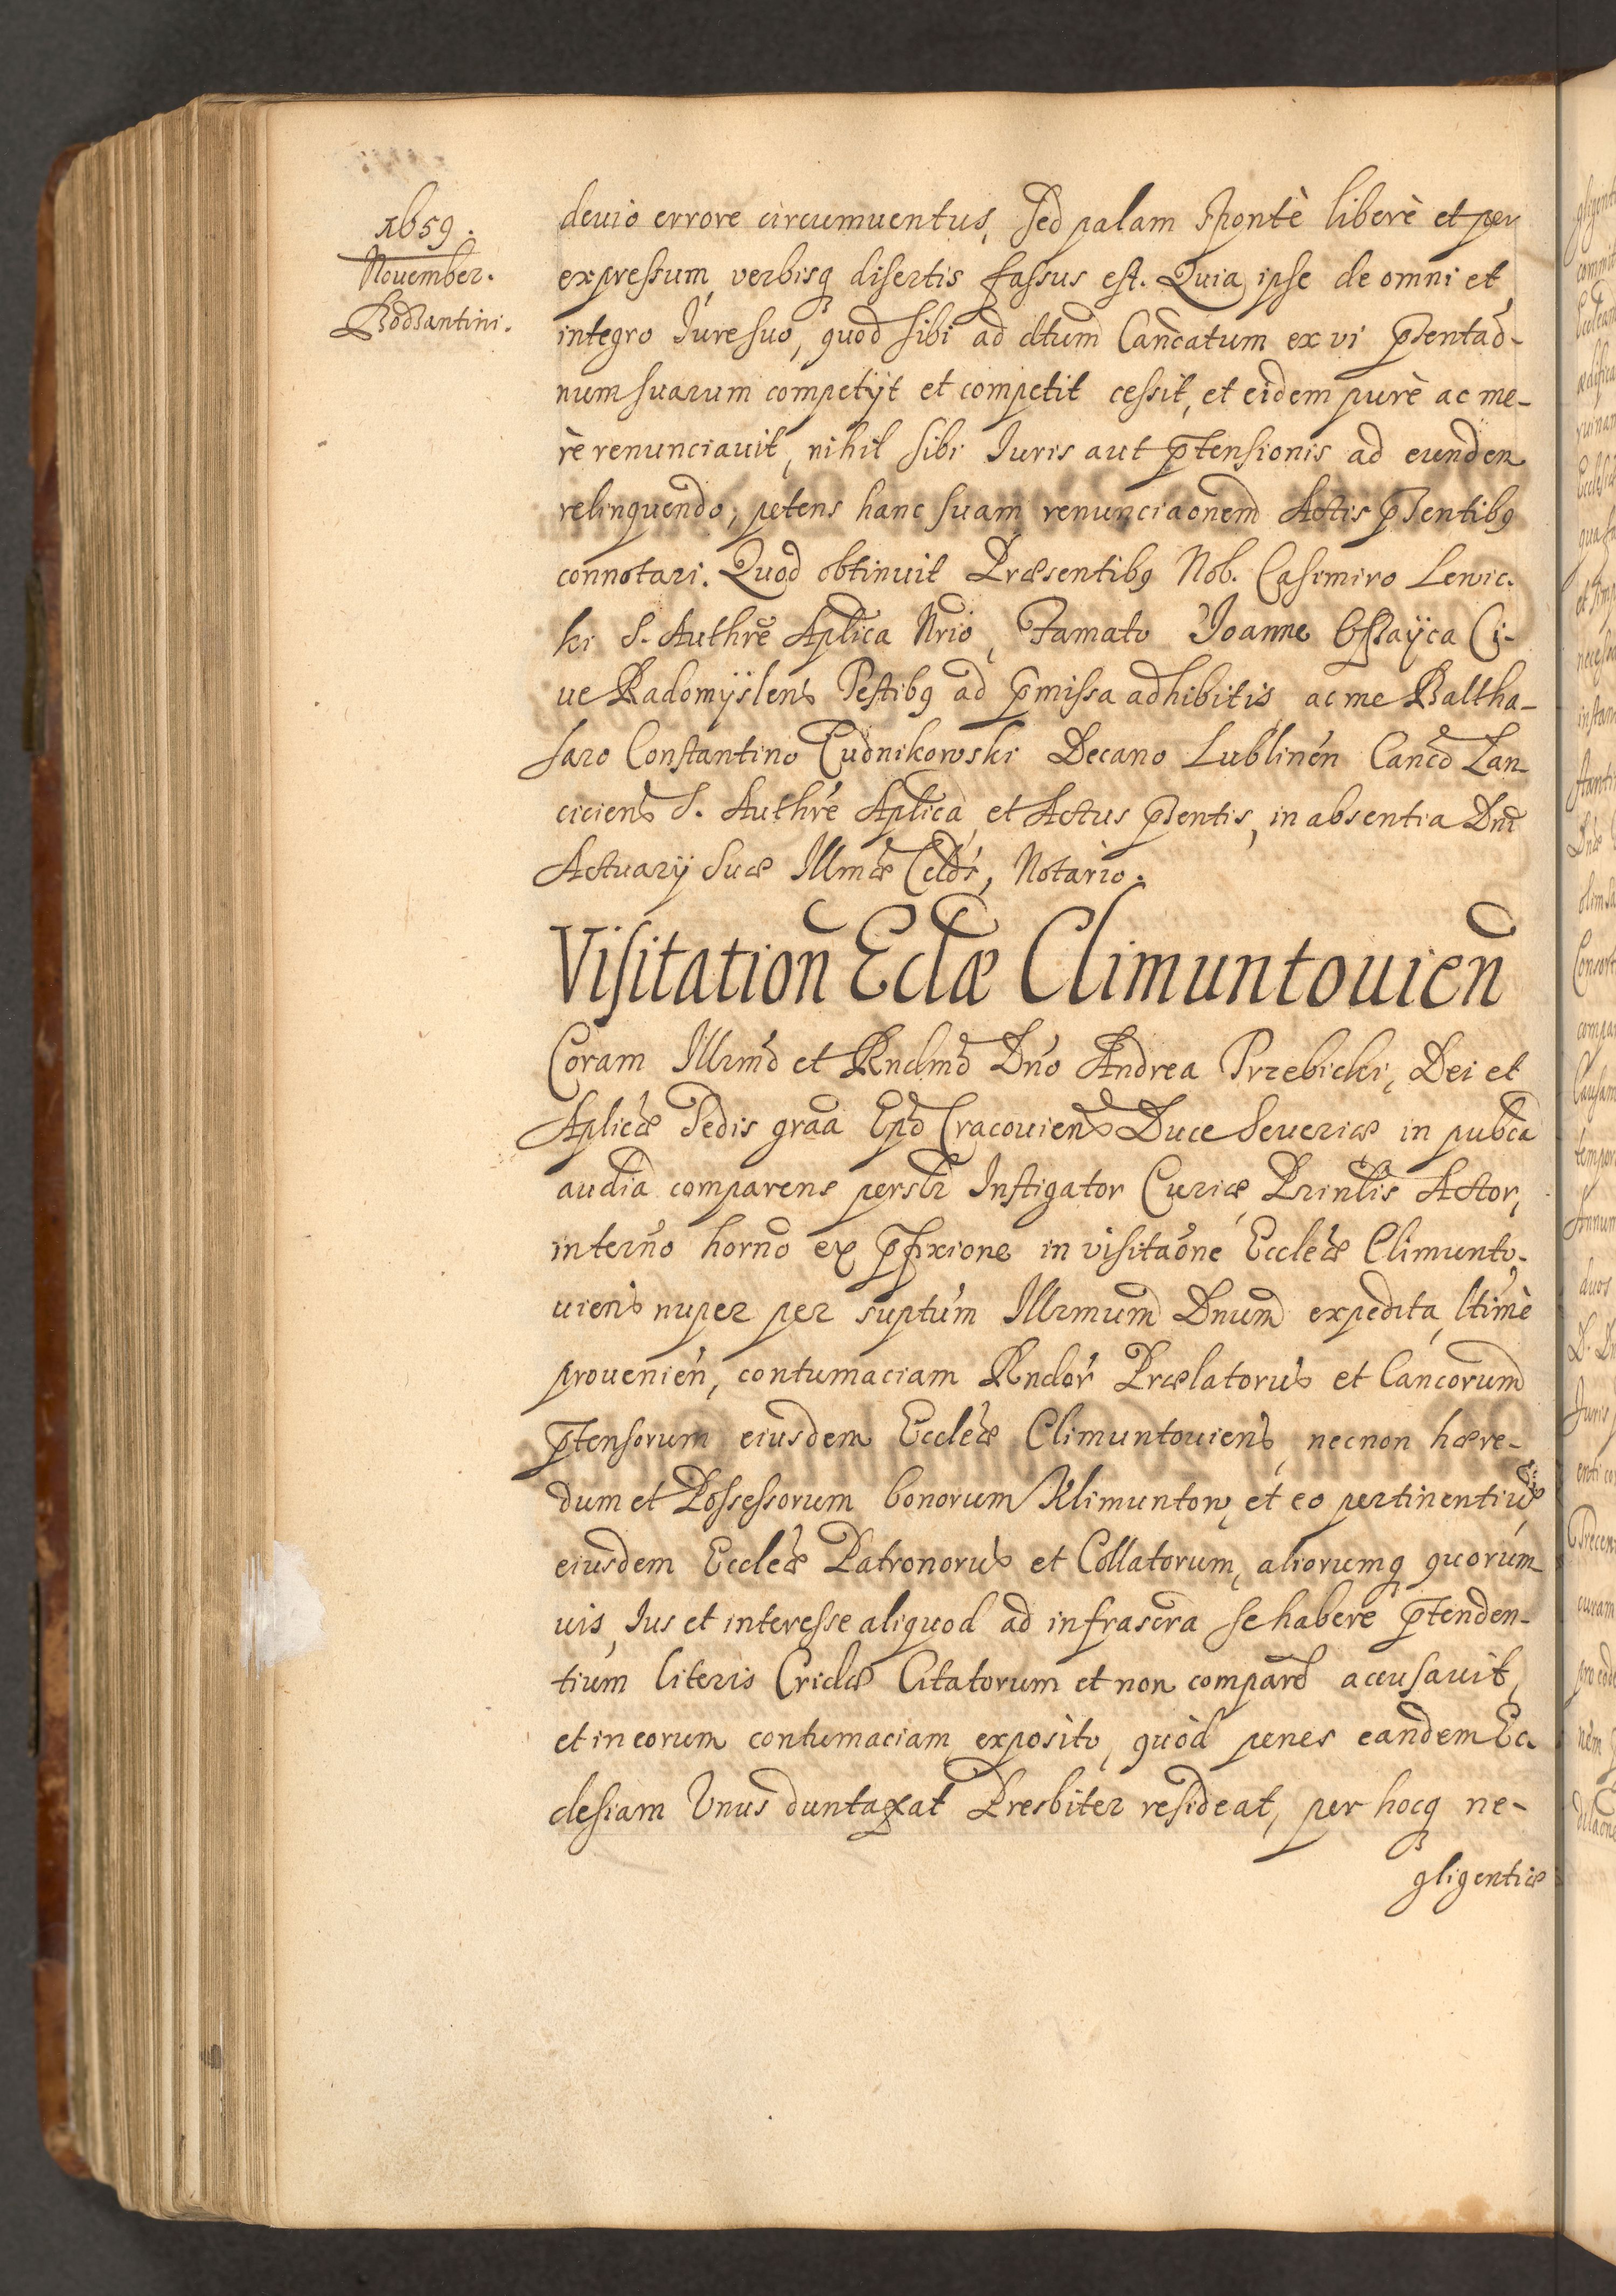 1659.
November.
Bodzantini.
deuio errore circumuentus, sed palam spontè liberè et per
expressum, verbisq disertis fassus est. Quia ipse de omni et
integro Iure suo, quod sibi ad dtum Cancatum ex vi pntaō-
num suarum competijt et competit cessit, et eidem purè ac me-
rè renunciauit, nihil sibi Iuris aut p̄tensionis ad eundem
relinquendo, petens hanc suam renunciaōnem Actis p̄sentibq
connotari. Quod obtinuit Præsentibq Nob. Casimiro Lewic-
ki S. Authrē Aplica Nrio, Famato Joanne Ci-
ue Radomÿslens Testibq ad p̄missa adhibitis ac me Baltha-
saro Constantino Cudnikowski Decano Lublinen Cancō Lan-
ciciens S. Authrē Aplica et Actus p̄sentis, in absentia Dni
Actuarij Suæ Illmæ Celdis, Notario.
Visitation Eclæ Climuntouien
Coram Illrmo et Rndmo Dno Andrea Trzebicki, Dei et
Aplicæ Sedis graa Epō Cracouiens Duce Seueriæ in pubca
audia comparens persltr Instigator Curiæ Prinlis Actor,
in terno horno ex p̄fixione in visitaōne Ecclēæ Climunto-
uiens nuper per suptum Illrmum Dnum expedita, ltimè
prouenien, contumaciam Rndor Prælatorum et Cancorum
p̄tensorum eiusdem Ecclēæ Climuntouiens, necnon hære-
dum et Possessorum bonorum Klimuntow, et eo pertinentium
eiusdem Ecclēæ Patronorum et Collatorum, aliorumq quorum-
uis, Ius et interesse aliquod ad infrascra se habere p̄tenden-
tium literis Cridæ Citatorum et non compar accusauit,
et in eorum contumaciam exposito, quòd penes eandem Ec-
clesiam Vnus duntaxat Presbiter resideat, per hocq ne-
gligentiæ